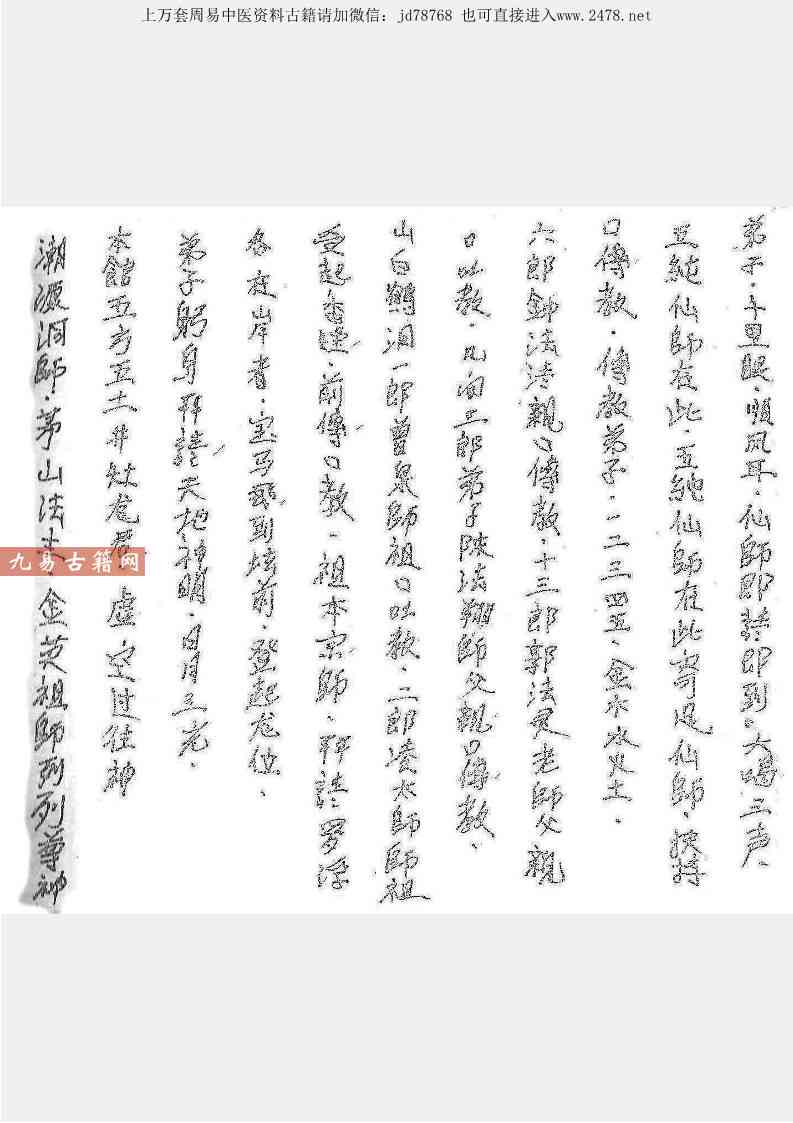 上万套周易中医资料古籍请加微信：jd78768 也可直接进入www.2478.net
弟子·千里眼·順风耳·仙師即請即到·大喝三声·
五純仙師在此·五純仙師在此 可是仙師·扶持
口傳教·傳教弟子·一二三四五·金木水火土·
六郎 法 親口傳教·十三郎郭法灵老師父親
口吐教· 向 郎弟子陳法翔師父親口傳教·
山白鶴洞一郎曾泉師祖口吐教·二郎 太師師祖
受起香 ·前傳口教·祖本宗師·拜請罗浮
岸者·宝马 到坛前·登起龙位·
弟子躬身拜請天地神明·日月三光·
本館五方五土井灶龙君 虚空过往神
潮源洞師·茅山法 金英祖師列列尊神
九易古籍网